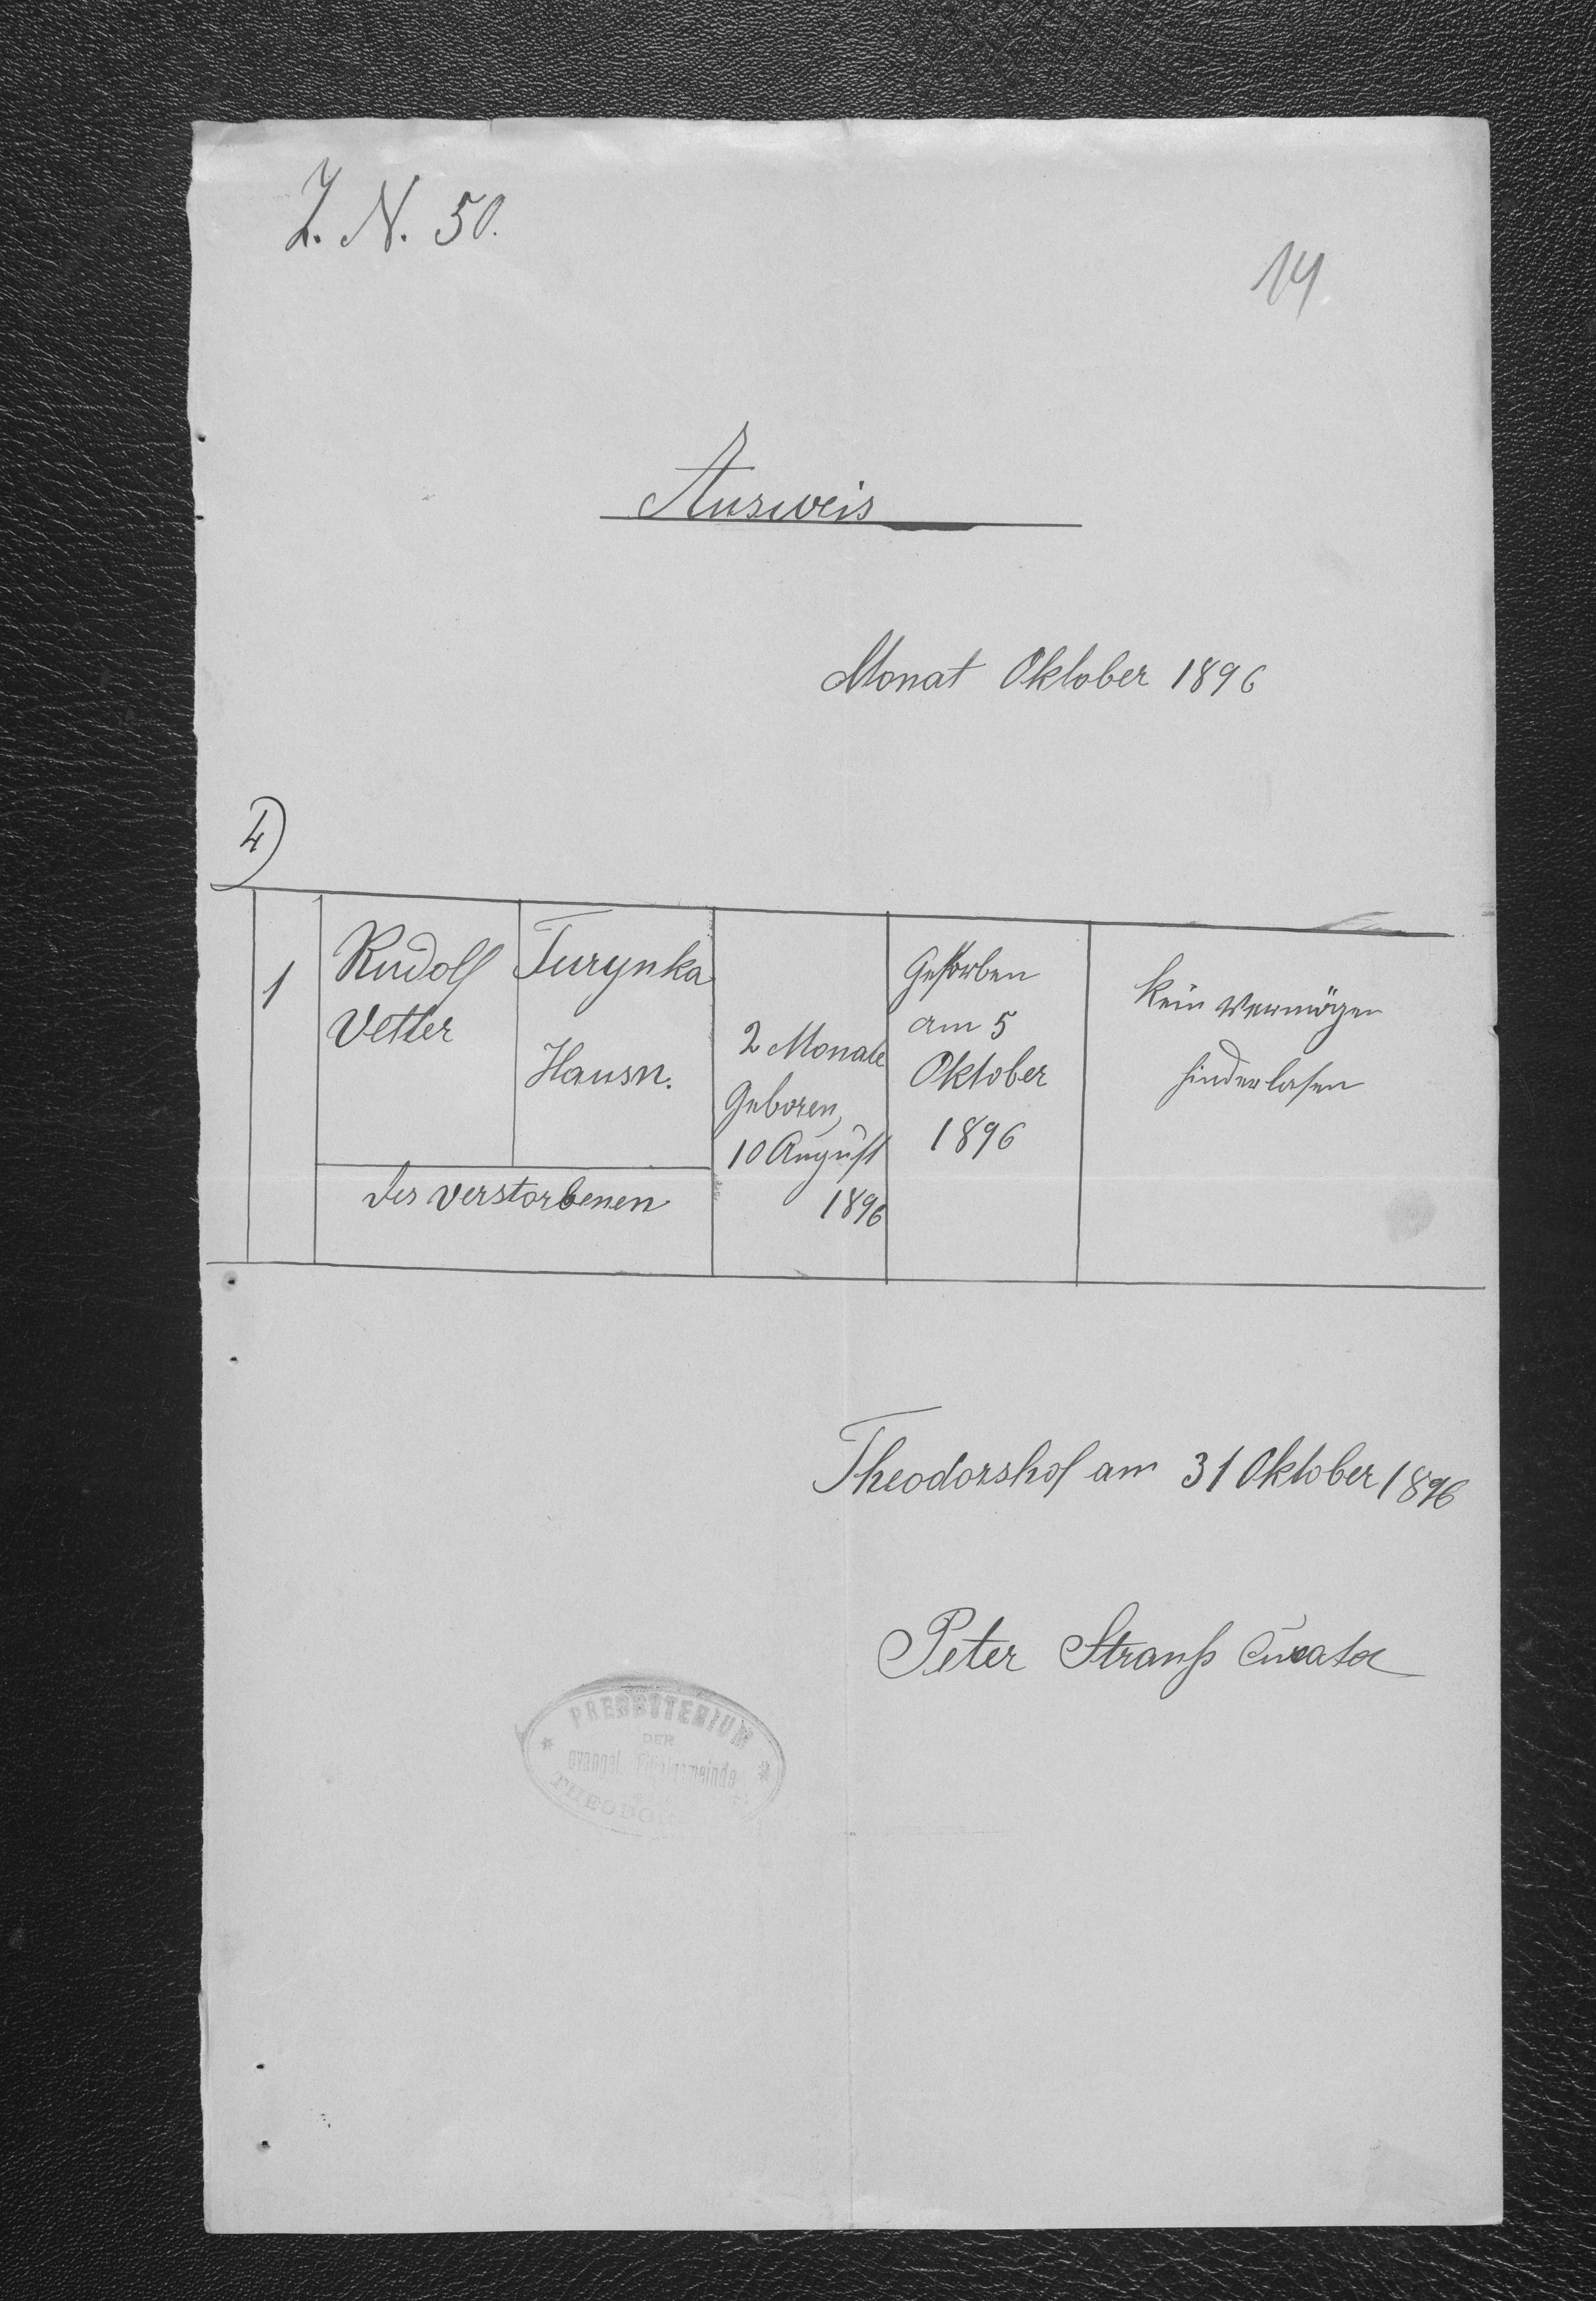 Z. N. 50.
14
Ausweis
Monat Oktober 1896
4)
1
Rudolf
Vetter
Turynka
Hausn.
des verstorbenen
2 Monate
Geboren,
10 August
1896
Gestorben
am 5
Oktober
1896
Kein Vermögen
hinderlasen
Theodorshof am 31 Oktober 1896
Peter Strauß Curator
PRESBYTERIUM
DER
evangel. Filialgemeinde
THEODO